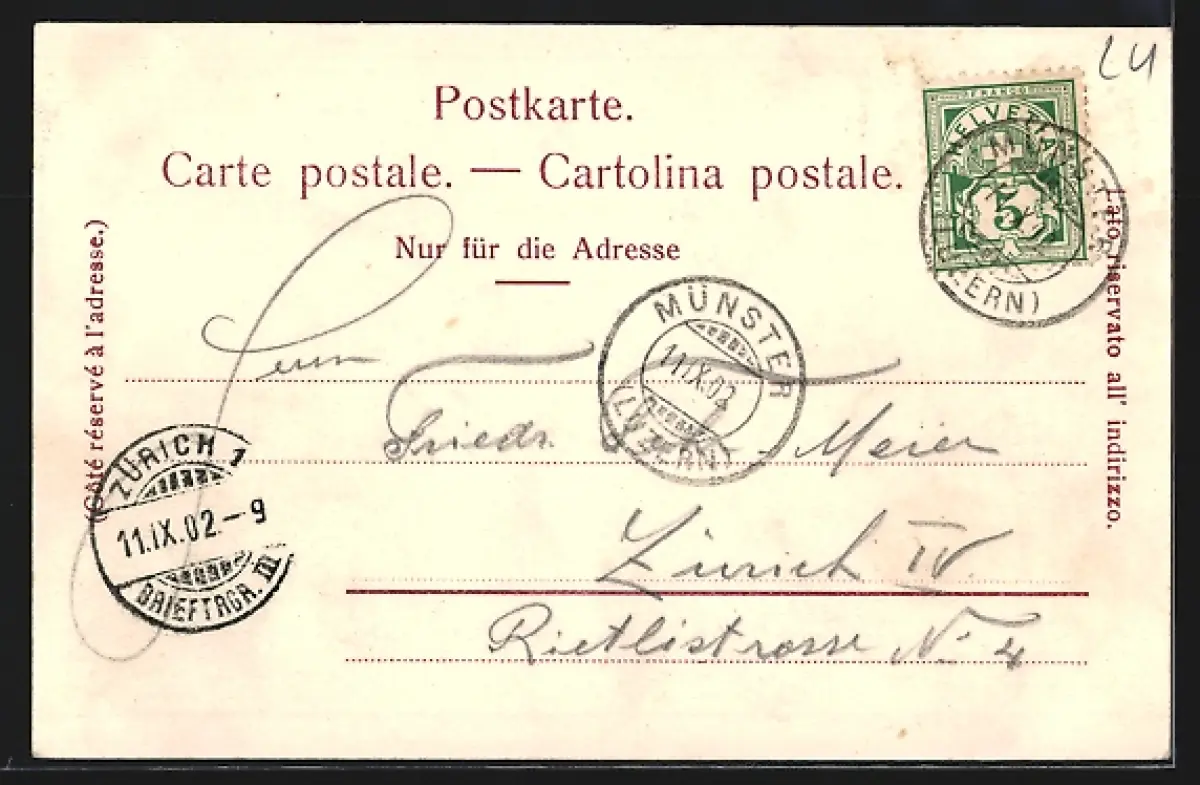 LU
Postkarte.
Carte postale. — Cartolina postale.
Nur für die Adresse
(Côté réservé à l'adresse.)
Lato riservato all' indirizzo.
FRANCO
HELVETIA
5
MÜNSTER
(LUZERN)
MÜNSTER
11.IX.02
(LUZERN)
Herrn
Friedr. Meier
Zürich IV.
Rietlistrasse No 4
ZÜRICH 1
11.IX.02.-9
BRIEFTRGR. III